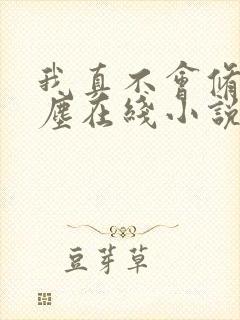 我真不會脩
塵在綫小說
豆芽草